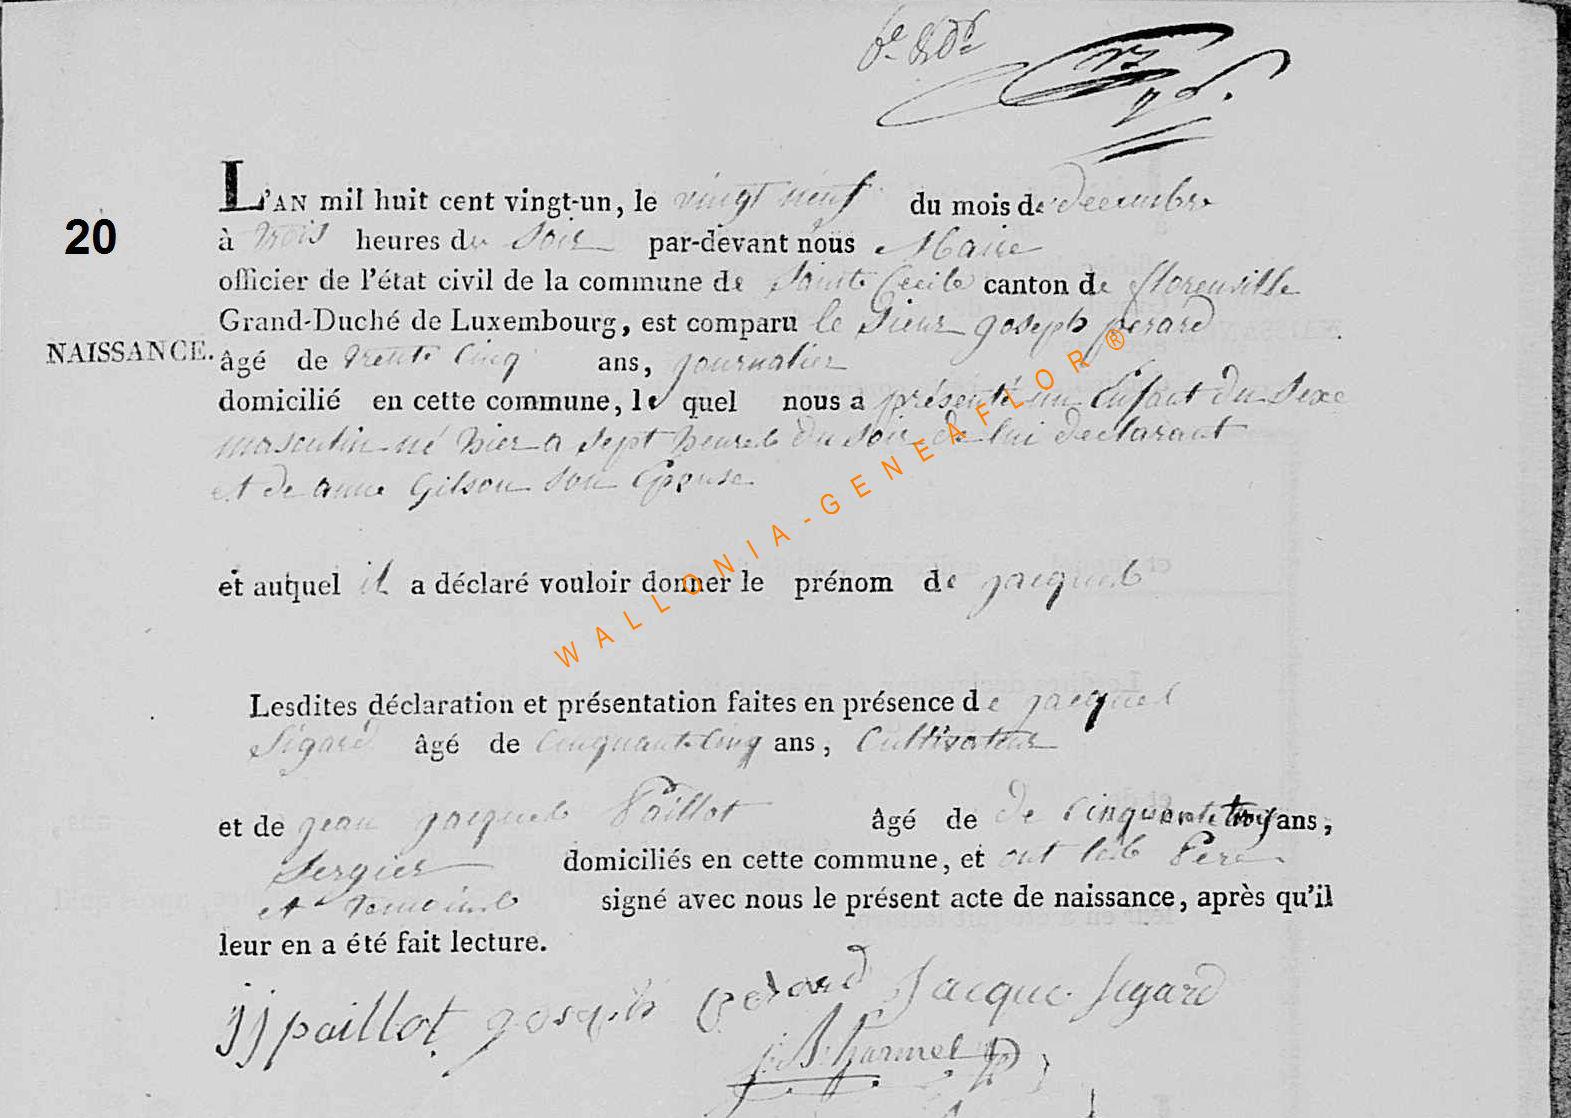 L'AN mil huit cent vingt-un, le vingt neuf du mois de decembre
20
à trois heures du soir par-devant nous Maire
officier de l'état civil de la commune de Sainte Cecile canton de florenville
Grand-Duché de Luxembourg, est comparu le Sieur joseph perard
NAISSANCE.
âgé de trente cinq ans, journalier
domicilié en cette commune, le quel nous a présenté un Enfant du Sexe
masculin né hier a sept heures du soir de lui declarant
et de anne Gilson son Epouse
et auquel il a déclaré vouloir donner le prénom de jacques
WALLONIA-GENEAFLOR ®
Lesdites déclaration et présentation faites en présence de jacques
Sigard âgé de cinquante cinq ans, Cultivateur
et de jean jacques Paillot âgé de de cinquante troy ans,
Sergier domiciliés en cette commune, et ont les Pere
et temoins signé avec nous le présent acte de naissance, après qu'il
leur en a été fait lecture.
jjpaillot joseph perard Jacque Sigard